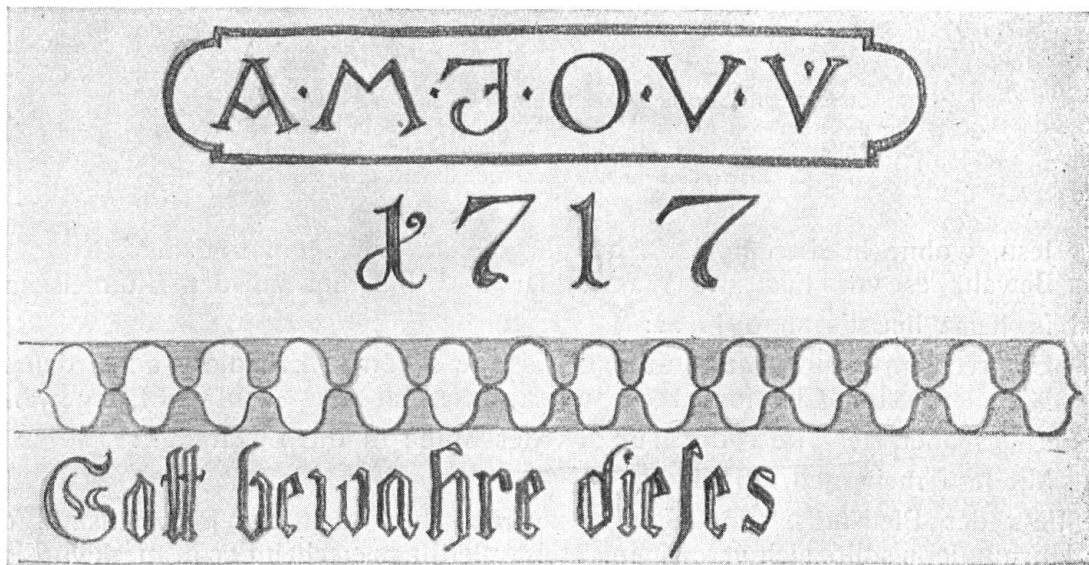 A·M·J·O·V·V
1717
Gott bewahre dieſes